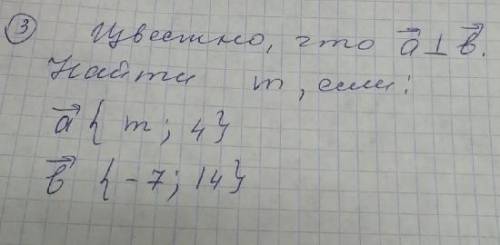 ③ Известно, что a⃗ ⊥ b⃗.
Найти m, если:
a⃗ { m; 4}
b⃗ {-7; 14}